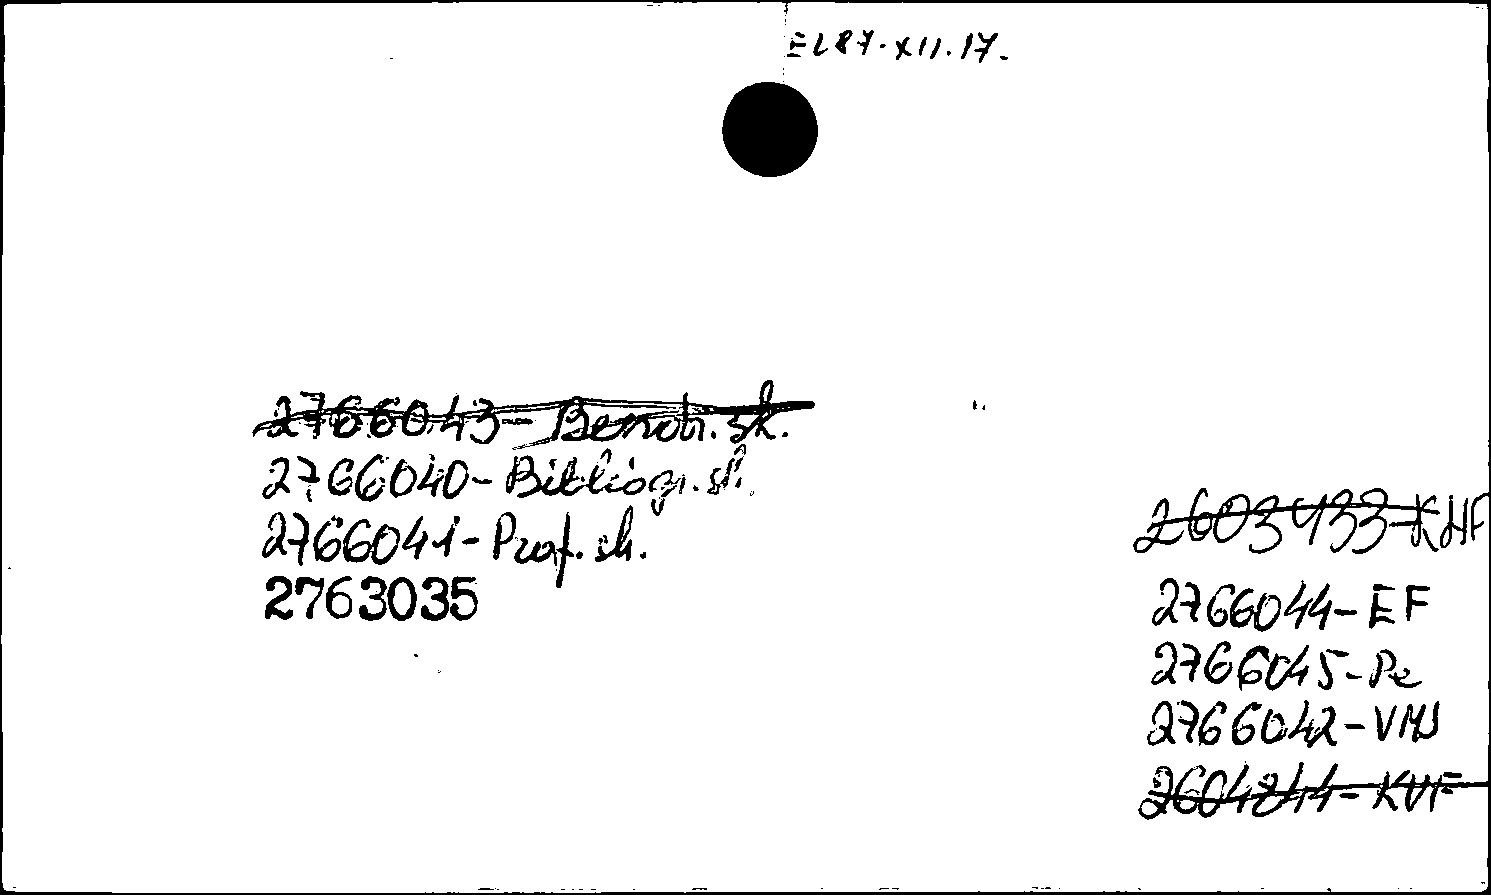 EL87.XII.17.
2766043- Bendr. sk.
2766040- Bibliogr. sk.
2766041- Prof. sk.
2763035
2603933-KHF
2766044- EF
2766045- Pe
2766042- VMS
2604844- KVF